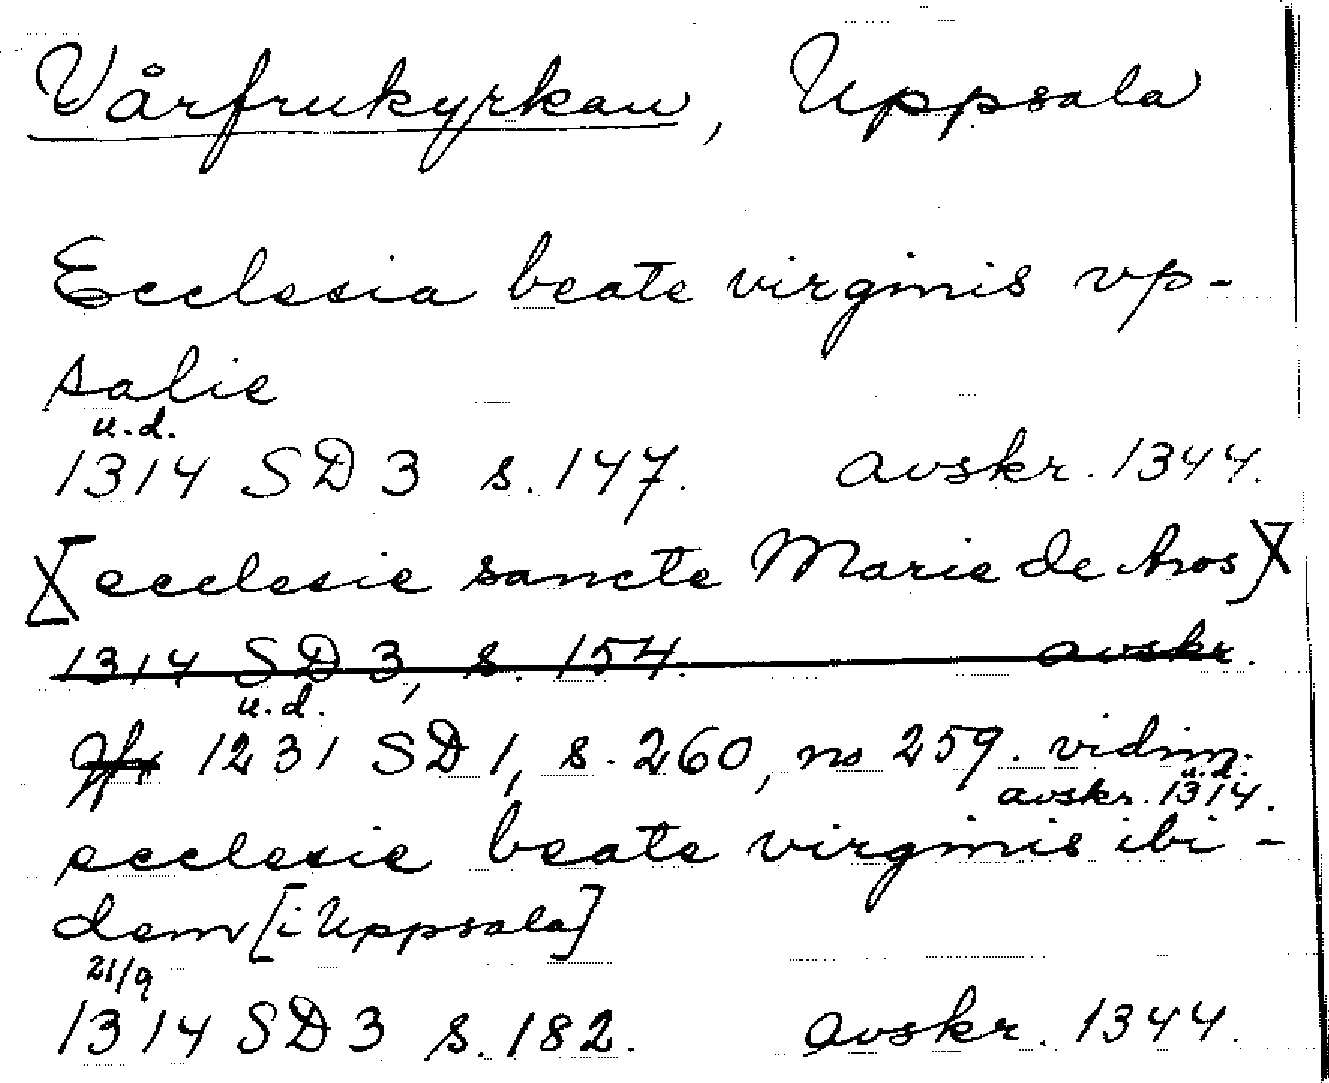 Vårfrukyrkan, Uppsala
Ecclesia beate virginis vp-
salie
u.d.
1314 SD 3 s. 147. avskr. 1344.
[ecclesie sancte Marie de Aros]
1314 SD 3, s. 154. avskr.
u.d.
1231 SD 1, s. 260, no 259. vidim.
u.d.
avskr. 1314.
ecclesie beate virginis ibi-
dem [i Uppsala]
21/9
1314 SD 3 s. 182. avskr. 1344.